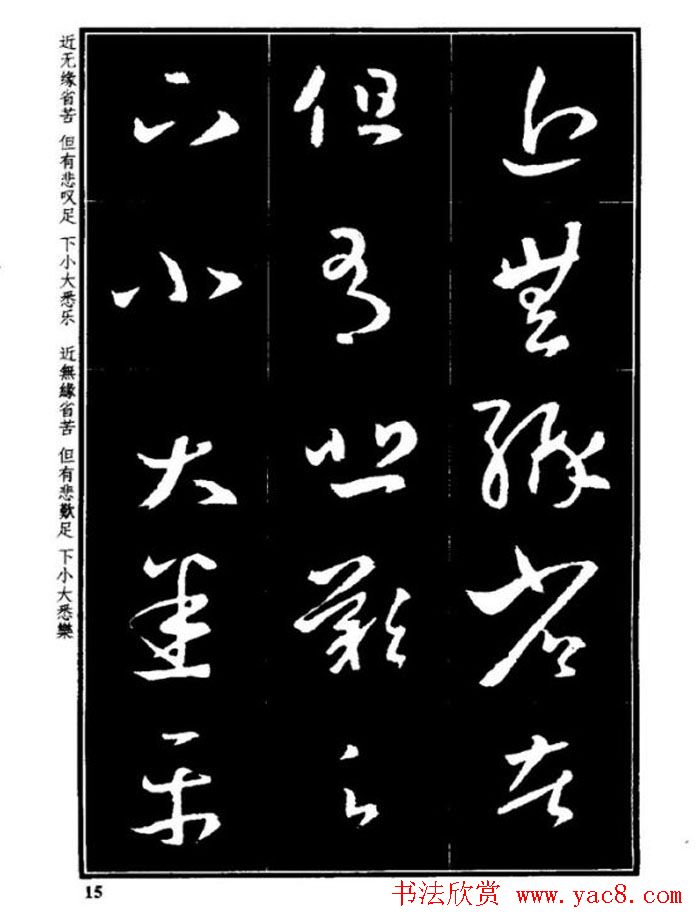 近無緣省苦
但有悲歎足
下小大悉樂
近无缘省苦 但有悲叹足 下小大悉乐 近無緣省苦 但有悲歎足 下小大悉樂
15
书法欣赏 www.yac8.com